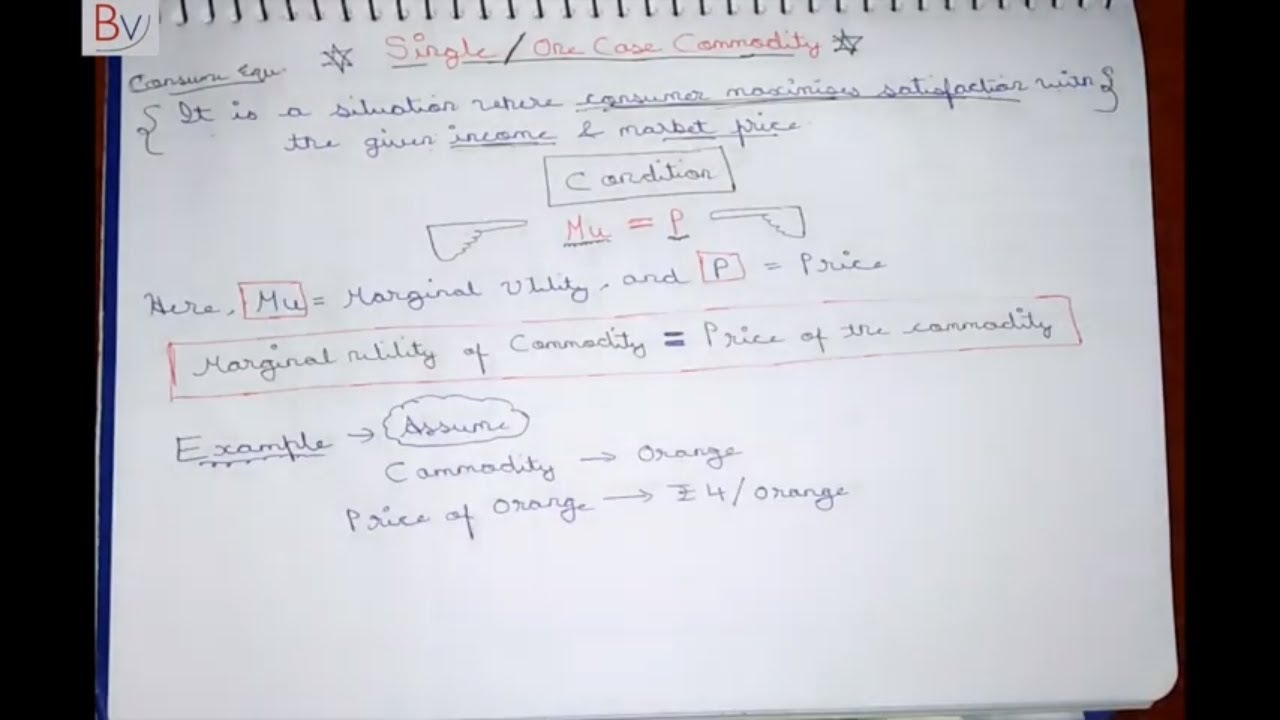 BV
☆ Single / One Case Commodity ☆
Consume Equ.
{ It is a situation where consumer maximises satisfaction with }
the given income & market price.
Condition
Mu = P
Here, Mu = Marginal Utility, and P = Price
Marginal utility of Commodity = Price of the commodity
Example → Assume
Commodity → Orange
Price of Orange → ₹ 4 / orange